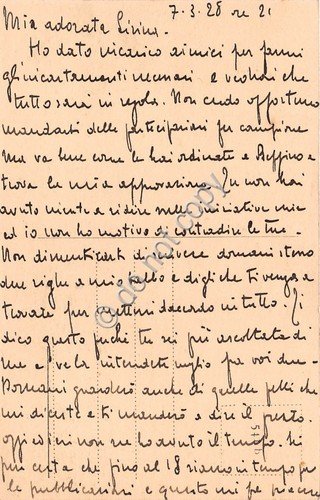 7.3.28 ore 21
Mia adorata
Ho dato incarico ai miei per farmi
gli incartamenti necessari e vedrai che
tutto sarà in regola. Non credo opportuno
mandarti delle partecipazioni per
ma va bene come le hai ordinate a Peppino e
trova la mia approvazione. Tu non hai
avuto niente a ridire sulle iniziative mie
ed io non ho motivo di contradire le tue.
Non dimenticarti di scrivere domani stesso
due righe a mio e digli che ti venga a
trovare per mettervi d'accordo in tutto. Ti
dico questo perchè tu sei più ascoltata di
me e ve la intendete meglio fra voi due.
Domani guarderò anche di quelle pelli che
mi diceste e ti manderò a dire il prezzo.
Oggi dì non ne ho avuto il tempo. Sei
più certa che fino al 18 siamo in tempo per
le pubblicazioni e questo mi fa piacere
do not copy